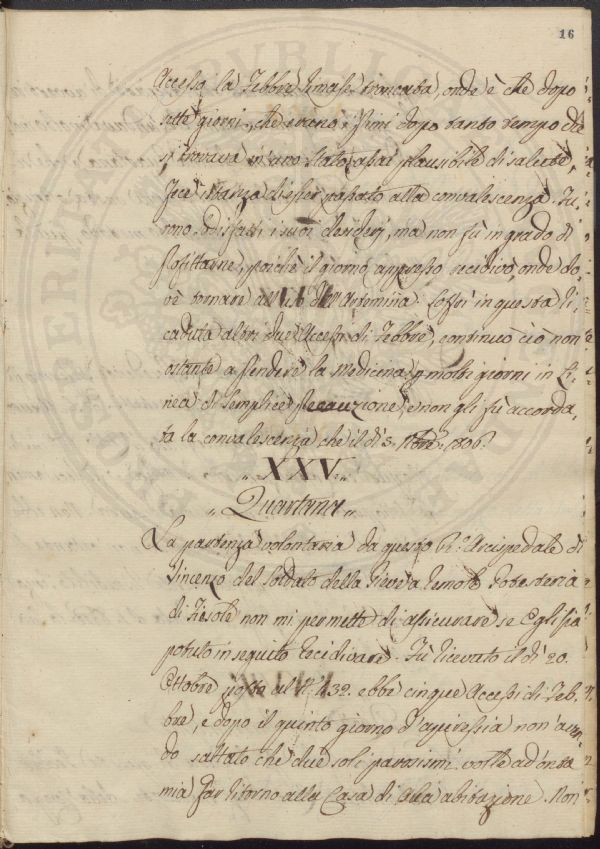 16
Accesso la Febbre rimase troncata, onde è che dopo
sette giorni, che erano i primi dopo tanto tempo che
si trovava in uno stato assai plausibile di salute,
fece istanza di esser passato alla convalescenza. Fu,
rono sodisfatti i suoi desiderj, ma non fù in grado di
profittarne, poichè il giorno appresso recidivò, onde do,
vè tornare all'uso dell'Artemisia. Soffrì in questa ri,
caduta altri due Accessi di Febbre, continuò ciò non
ostante a prendere la Medicina p molti giorni in Li,
nea di semplice precauzione, e non gli fù accorda,
ta la convalescenza che il dì 3. Nbre. 1806.
„ XXV. „
„ Quartana „
La partenza volontaria da questo R.o Arcispedale di
Vincenzo del Soldato della Pieve a Remole Potesteria
di Fiesole non mi permette di assicurare se Egli sia
potuto in seguito recidivare. Fù ricevuto il dì 20.
Ottobre, posto al N. 432. ebbe cinque Accessi di Feb,
bre, e dopo il quinto giorno d'apiressia non aven,
do saltato che due soli parosismi volle ad onta
mia far ritorno alla Casa di Sua abitazione. Non